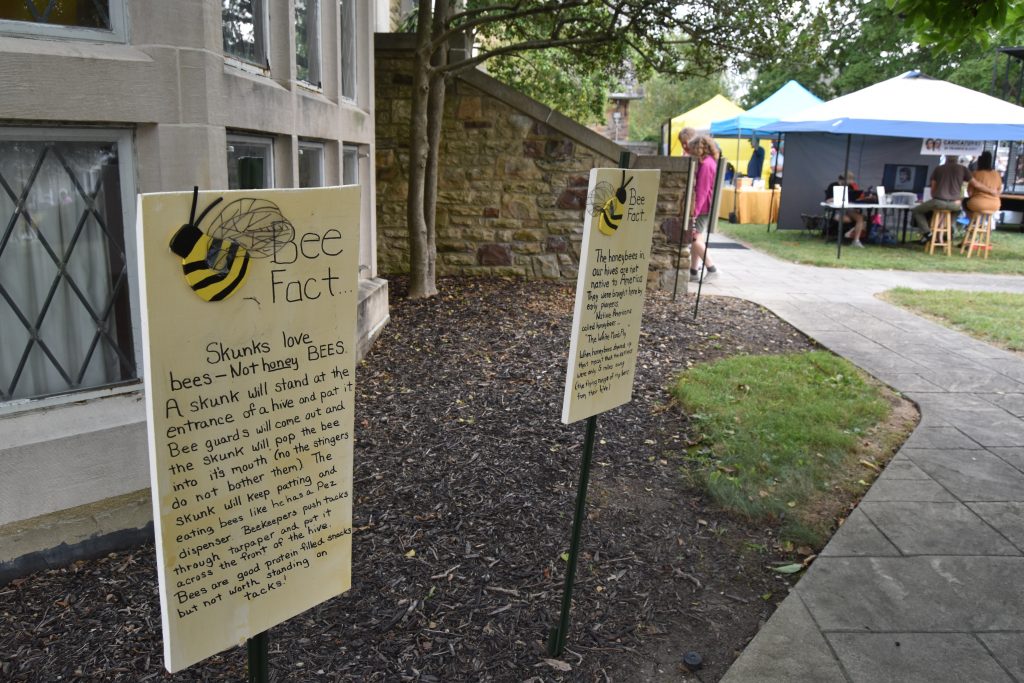 Bee
Fact...
Skunks love
bees - Not honey BEES.
A skunk will stand at the
entrance of a hive and pat it
Bee guards will come out and
the skunk will pop the bee
into it's mouth (no the stingers
do not bother them) The
skunk will keep patting and
eating bees like he has a Pez
dispenser. Beekeepers push tacks
through tarpaper and put it
across the front of the hive.
Bees are good protein filled snacks
but not worth standing on
tacks!
Bee
Fact.
The honeybees in
our hives are not
native to America
They were brought here by
early pioneers.
Native Americans
called honeybees...
"The White Man's Fly
When honeybees showed up
that meant that the settlers
were only 5 miles away
(the flying range of
from their hive)
CARICATURES